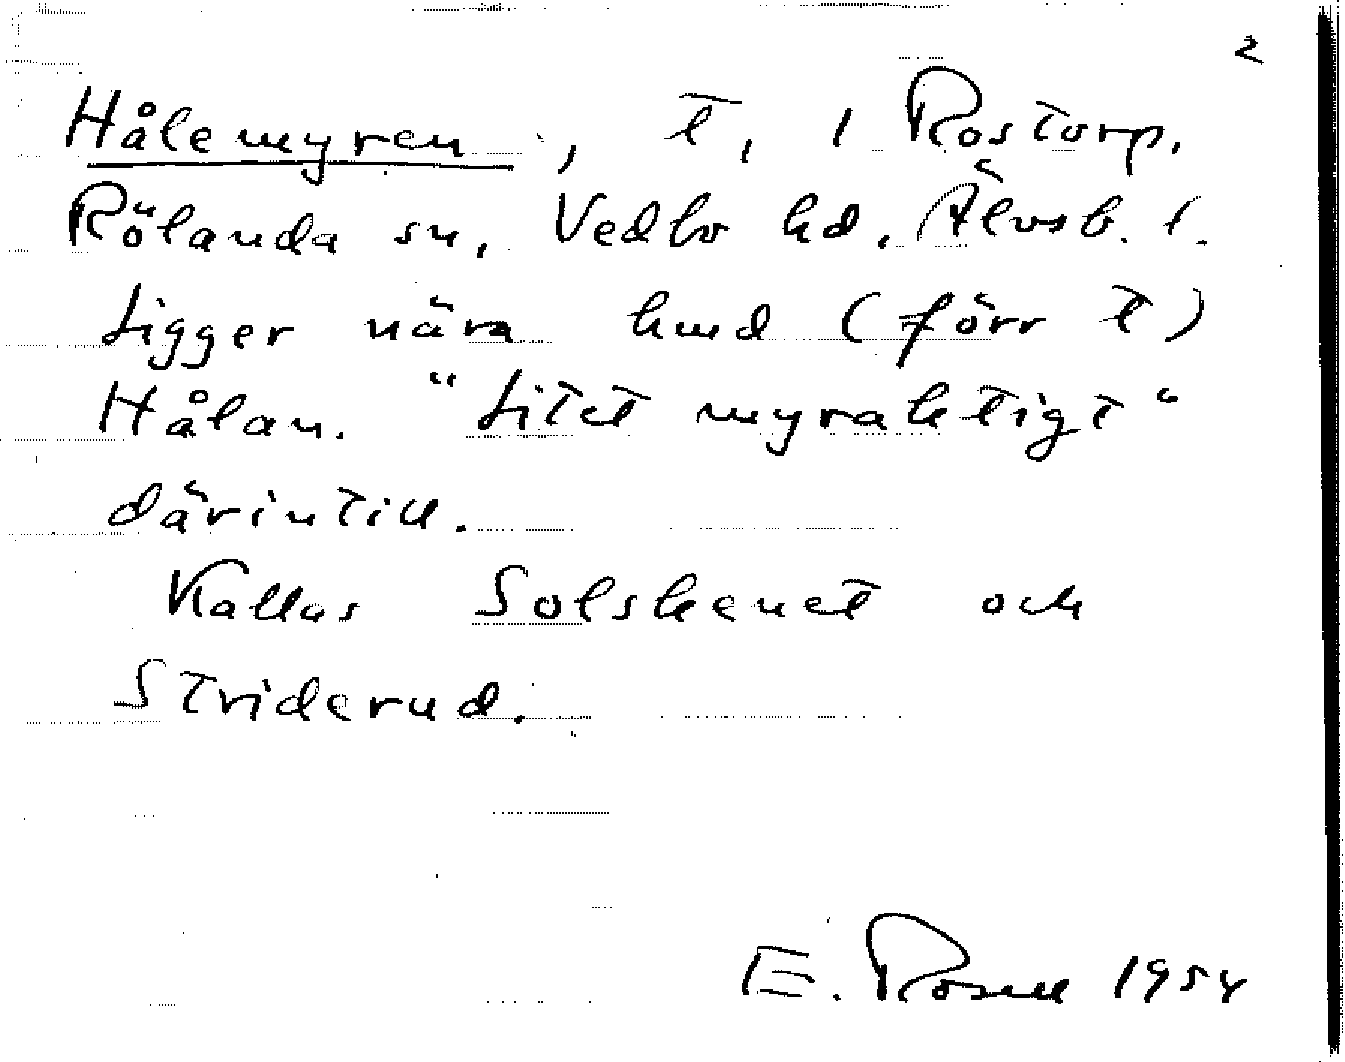 2
Hålemyren, t, 1 Rostorp.
Rölanda sn, Vedbo hd, Älvsb. l.
Ligger nära hmd (förr t)
Hålan. "Litet myraktigt"
därintill.
Kallas Solskenet och
Striderud.
E. Rosell 1954